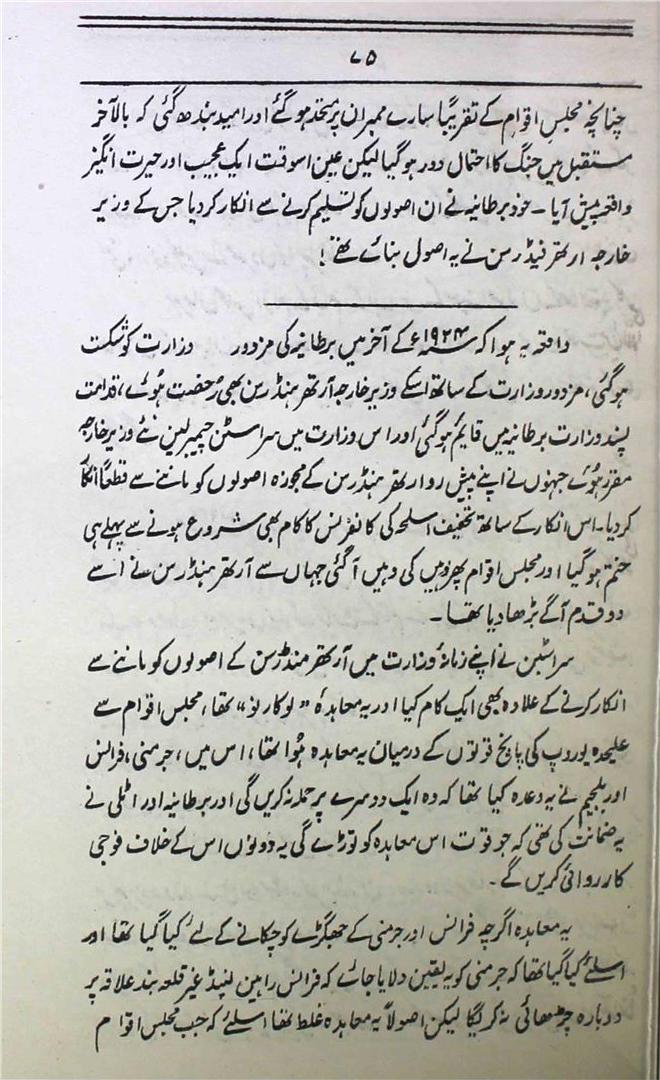 ۷۵
چنانچہ مجلس اقوام کے تقریباً سارے ممبران پر متحد ہوگئے اور امید بندھ گئی کہ بالآخر
مستقبل میں جنگ کا احتمال دور ہوگیا لیکن عین اسوقت ایک عجیب اور حیرت انگیز
واقعہ پیش آیا ۔ خود برطانیہ نے ان اصولوں کو تسلیم کرنے سے انکار کردیا جس کے وزیر
خارجہ ارتھر ہنڈرسن نے یہ اصول بنائے تھے !
واقعہ یہ ہوا کہ ۱۹۲۴ء کے آخر میں برطانیہ کی مزدور وزارت کو شکست
ہوگئی، مزدور وزارت کے ساتھ اسکے وزیر خارجہ آرتھر ہنڈرسن بھی رخصت ہوئے، قدامت
پسند وزارت برطانیہ میں قایم ہوگئی اور اس وزارت میں سر اسٹن چیمبرلین نئے وزیر خارجہ
مقرر ہوئے جنہوں نے اپنے پیش رو ارتھر ہنڈرسن کے مجوزہ اصولوں کو ماننے سے قطعاً انکار
کردیا۔ اس انکار کے ساتھ تخفیف اسلحہ کی کانفرنس کا کام بھی شروع ہونے سے پہلے ہی
ختم ہوگیا اور مجلس اقوام پھر وہیں کی وہیں آگئی جہاں سے آرتھر ہنڈرسن نے اسے
دو قدم آگے بڑھا دیا تھا ۔
سر اسٹین نے اپنے زمانۂ وزارت میں آرتھر ہنڈرسن کے اصولوں کو ماننے سے
انکار کرنے کے علاوہ بھی ایک کام کیا اور یہ معاہدہ "لوکارنو" تھا، مجلس اقوام سے
علیحدہ یوروپ کی پانچ قوتوں کے درمیان یہ معاہدہ ہوا تھا، اس میں، جرمنی، فرانس
اور بلجیم نے یہ وعدہ کیا تھا کہ وہ ایک دوسرے پر حملہ نہ کریں گی اور برطانیہ اور اٹلی نے
یہ ضمانت کی تھی کہ جو قوت اس معاہدہ کو توڑے گی یہ دونوں اس کے خلاف فوجی
کارروائی کریں گے ۔
یہ معاہدہ اگرچہ فرانس اور جرمنی کے جھگڑے کو چکانے کے لئے کیا گیا تھا اور
اسلئے کیا گیا تھا کہ جرمنی کو یہ یقین دلایا جائے کہ فرانس راہین لینڈ غیر قلعہ بند علاقہ پر
دوبارہ چڑھائی نہ کریگا لیکن اصولاً یہ معاہدہ غلط تھا اسلئے کہ جب مجلس اقوام